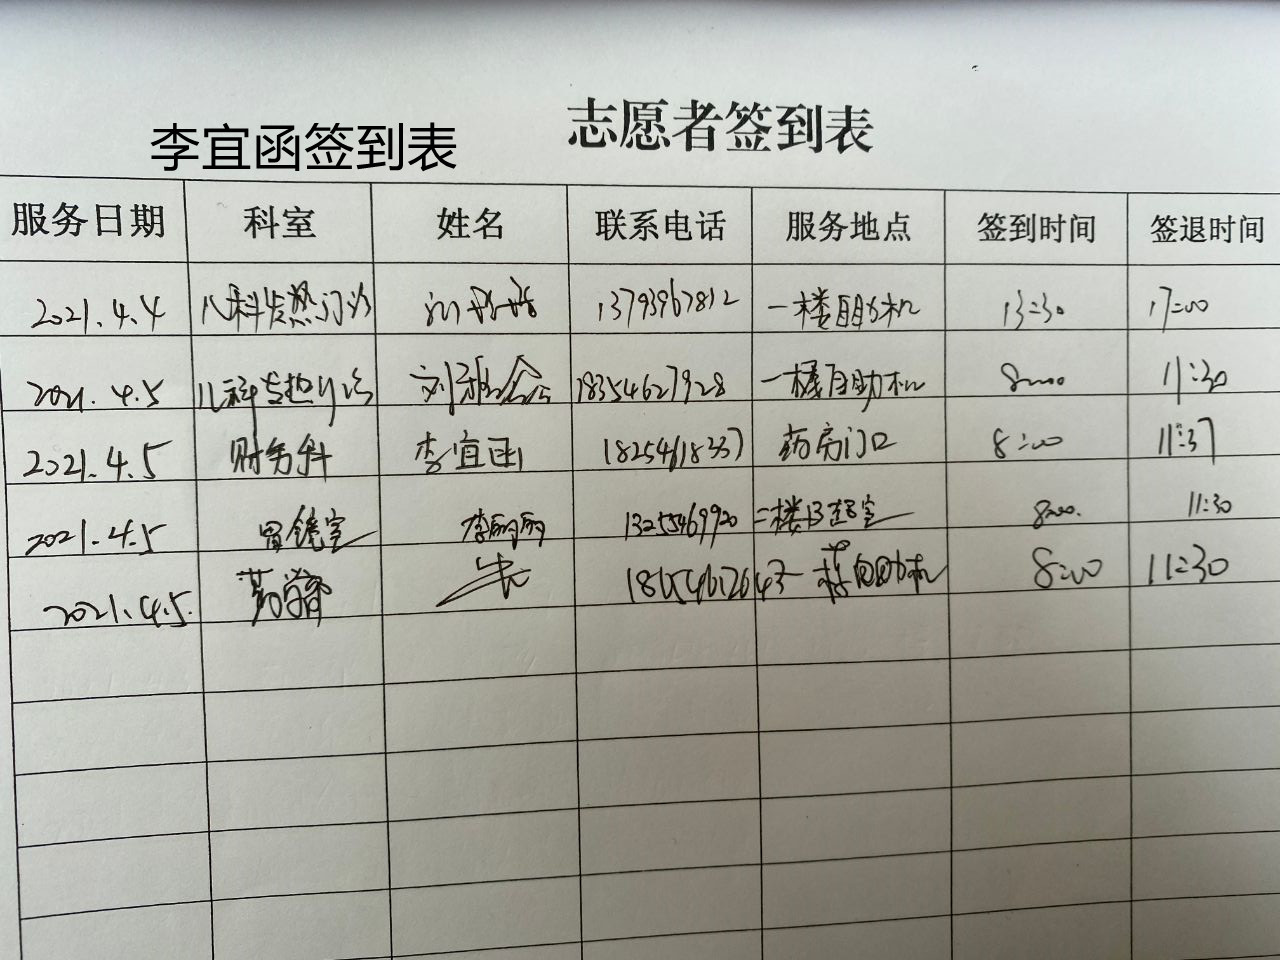 李宜函签到表
志愿者签到表
服务日期 科室 姓名 联系电话 服务地点 签到时间 签退时间
2021.4.4 儿科发热门诊 13793967812 一楼自助机 13:30 17:00
2021.4.5 儿科发热门诊 刘 18354627928 一楼自助机 8:00 11:30
2021.4.5 财务科 李宜函 药房门口 8:00 11:37
2021.4.5 胃镜室 李丽丽 13255469920 二楼B超室 8:00 11:30
2021.4.5 一楼自助机 8:00 11:30